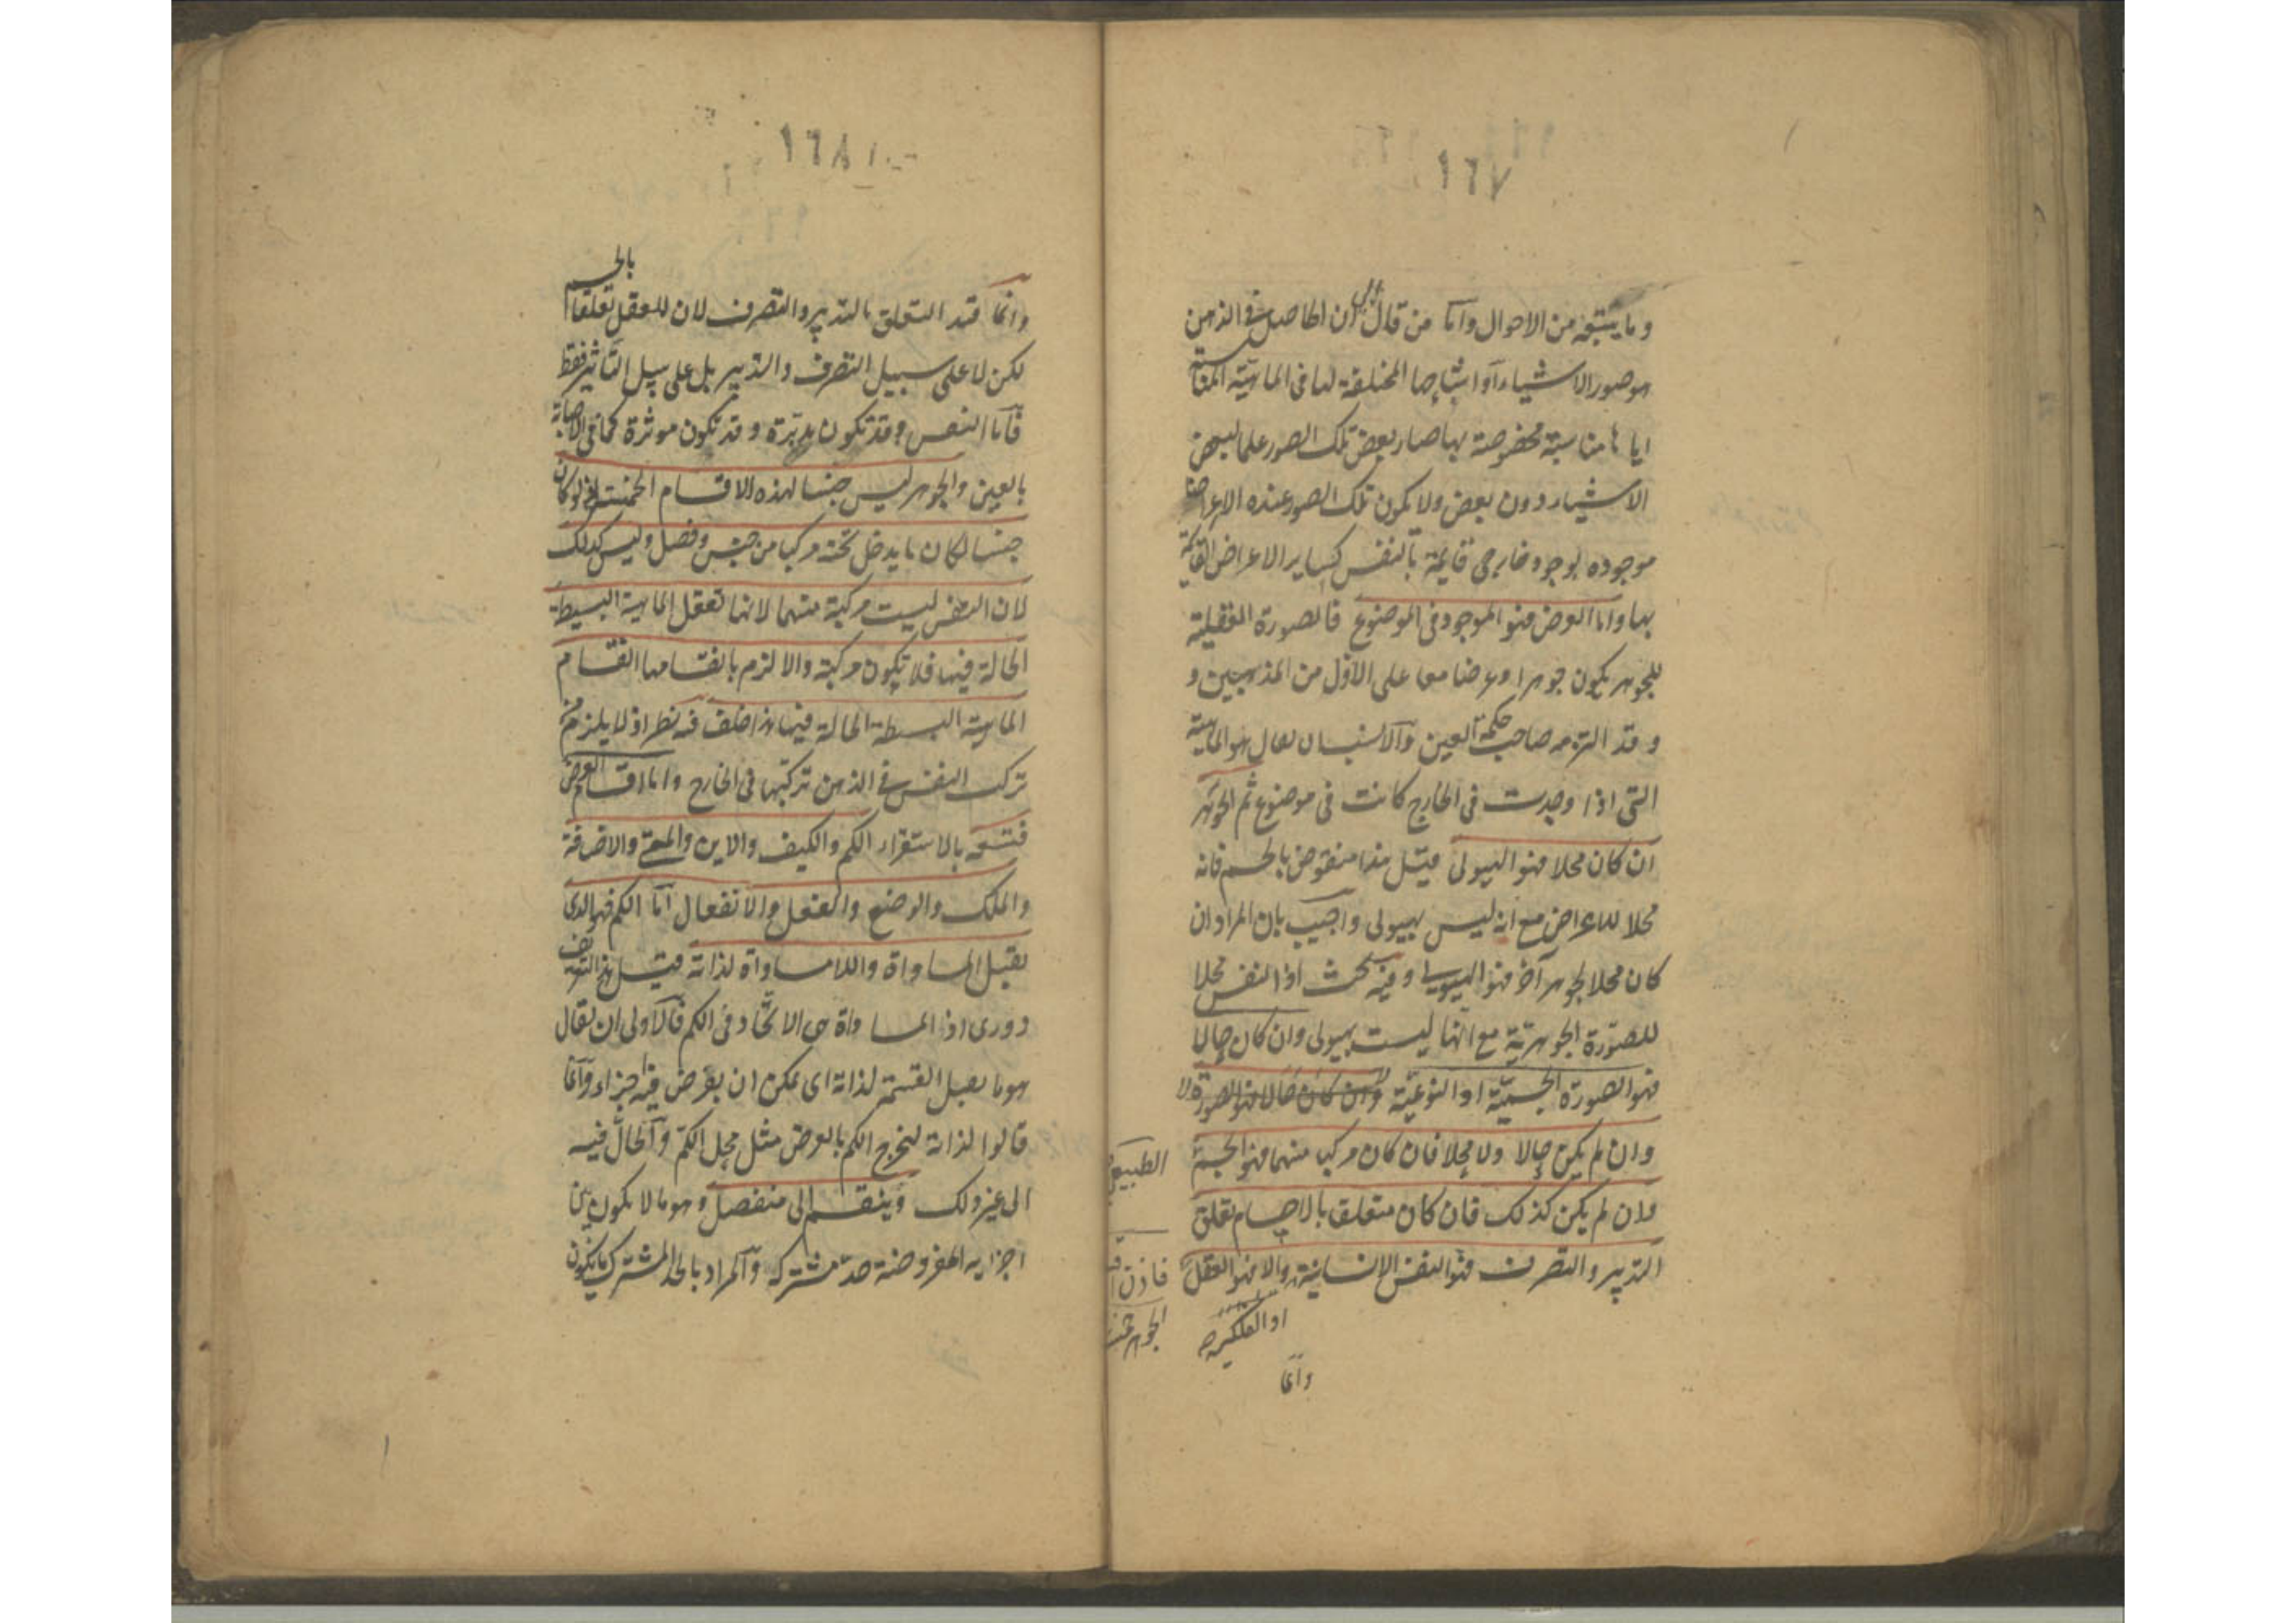 ١٦٧
وما يتبعه من الاحوال واما من قال ان الحاصل فى الذهن
هو صور الاشياء او اشباحها المخالفة لها فى الماهية المناسبة
اياها مناسبة مخصوصة بها صار بعض تلك الصور علما لبعض
الاشياء دون بعض ولا يكون تلك الصور عنده الا اعراضا
موجودة بوجود خارجى قائمة بالنفس كساير الاعراض القائمة
بها واما العرض فهو الموجود فى الموضوع فالصورة العقلية
للجوهر يكون جوهرا وعرضا معا على الاول من المذهبين و
وقد التزمه صاحب حكمة العين والانسب ان يقال هو الماهية
التى اذا وجدت فى الخارج كانت فى موضوع ثم الجوهر
ان كان محلا فهو الهيولى قيل هذا منقوض بالجسم فانه
محلا للاعراض مع انه ليس بهيولى واجيب بان المراد ان
كان محلا لجوهر آخر فهو الهيولى وفيه بحث اذ النفس محلا
للصورة الجوهرية مع انها ليست بهيولى وان كان حالا
فهو الصورة الجسمية او النوعية وان كان حالا فهو الصورة
وان لم يكن حالا ولا محلا فان كان مركبا منهما فهو الجسم
الطبيعى
وان لم يكن كذلك فان كان متعلقا بالاجسام تعلق
التدبير والتصرف فهو النفس الانسانية والا فهو العقل
او الفلكية
وانما
١٦٨
بالجسم
وانما قيد التعلق بالتدبير والتصرف لان للعقل تعلقا
لكن لا على سبيل التصرف والتدبير بل على سبيل التاثير فقط
فاما النفس فقد تكون مدبرة وقد تكون موثرة كما فى الاصابة
بالعين والجوهر ليس جنسا لهذه الاقسام الخمسة اذ لو كان
جنسا لكان ما يدخل تحته مركبا من جنس وفصل وليس كذلك
لان النفس ليست مركبة منهما لانها تعقل الماهية البسيطة
الحالة فيها فلا تكون مركبة والا لزم بانقسامها انقسام
الماهية البسيطة الحالة فيها هذا خلف فيه نظر اذ لا يلزم من
تركب النفس فى الذهن تركبها فى الخارج واما اقسام العرض
فتسعة بالاستقراء الكم والكيف والاين والمتى والاضافة
والملك والوضع والفعل والانفعال اما الكم فهو الذى
يقبل المساواة واللامساواة لذاته قيل هذا التعريف
دورى اذ المساواة هى الاتحاد فى الكم فالاولى ان يقال
هو ما يقبل القسمة لذاته اى يمكن ان يفرض فيه اجزاء وانما
قالوا لذاته ليخرج الكم بالعرض مثل محل الكم والحال فيه
الى غير ذلك وينقسم الى منفصل وهو ما لا يكون بين
اجزائه المفروضة حد مشترك والمراد بالحد المشترك ما يكون